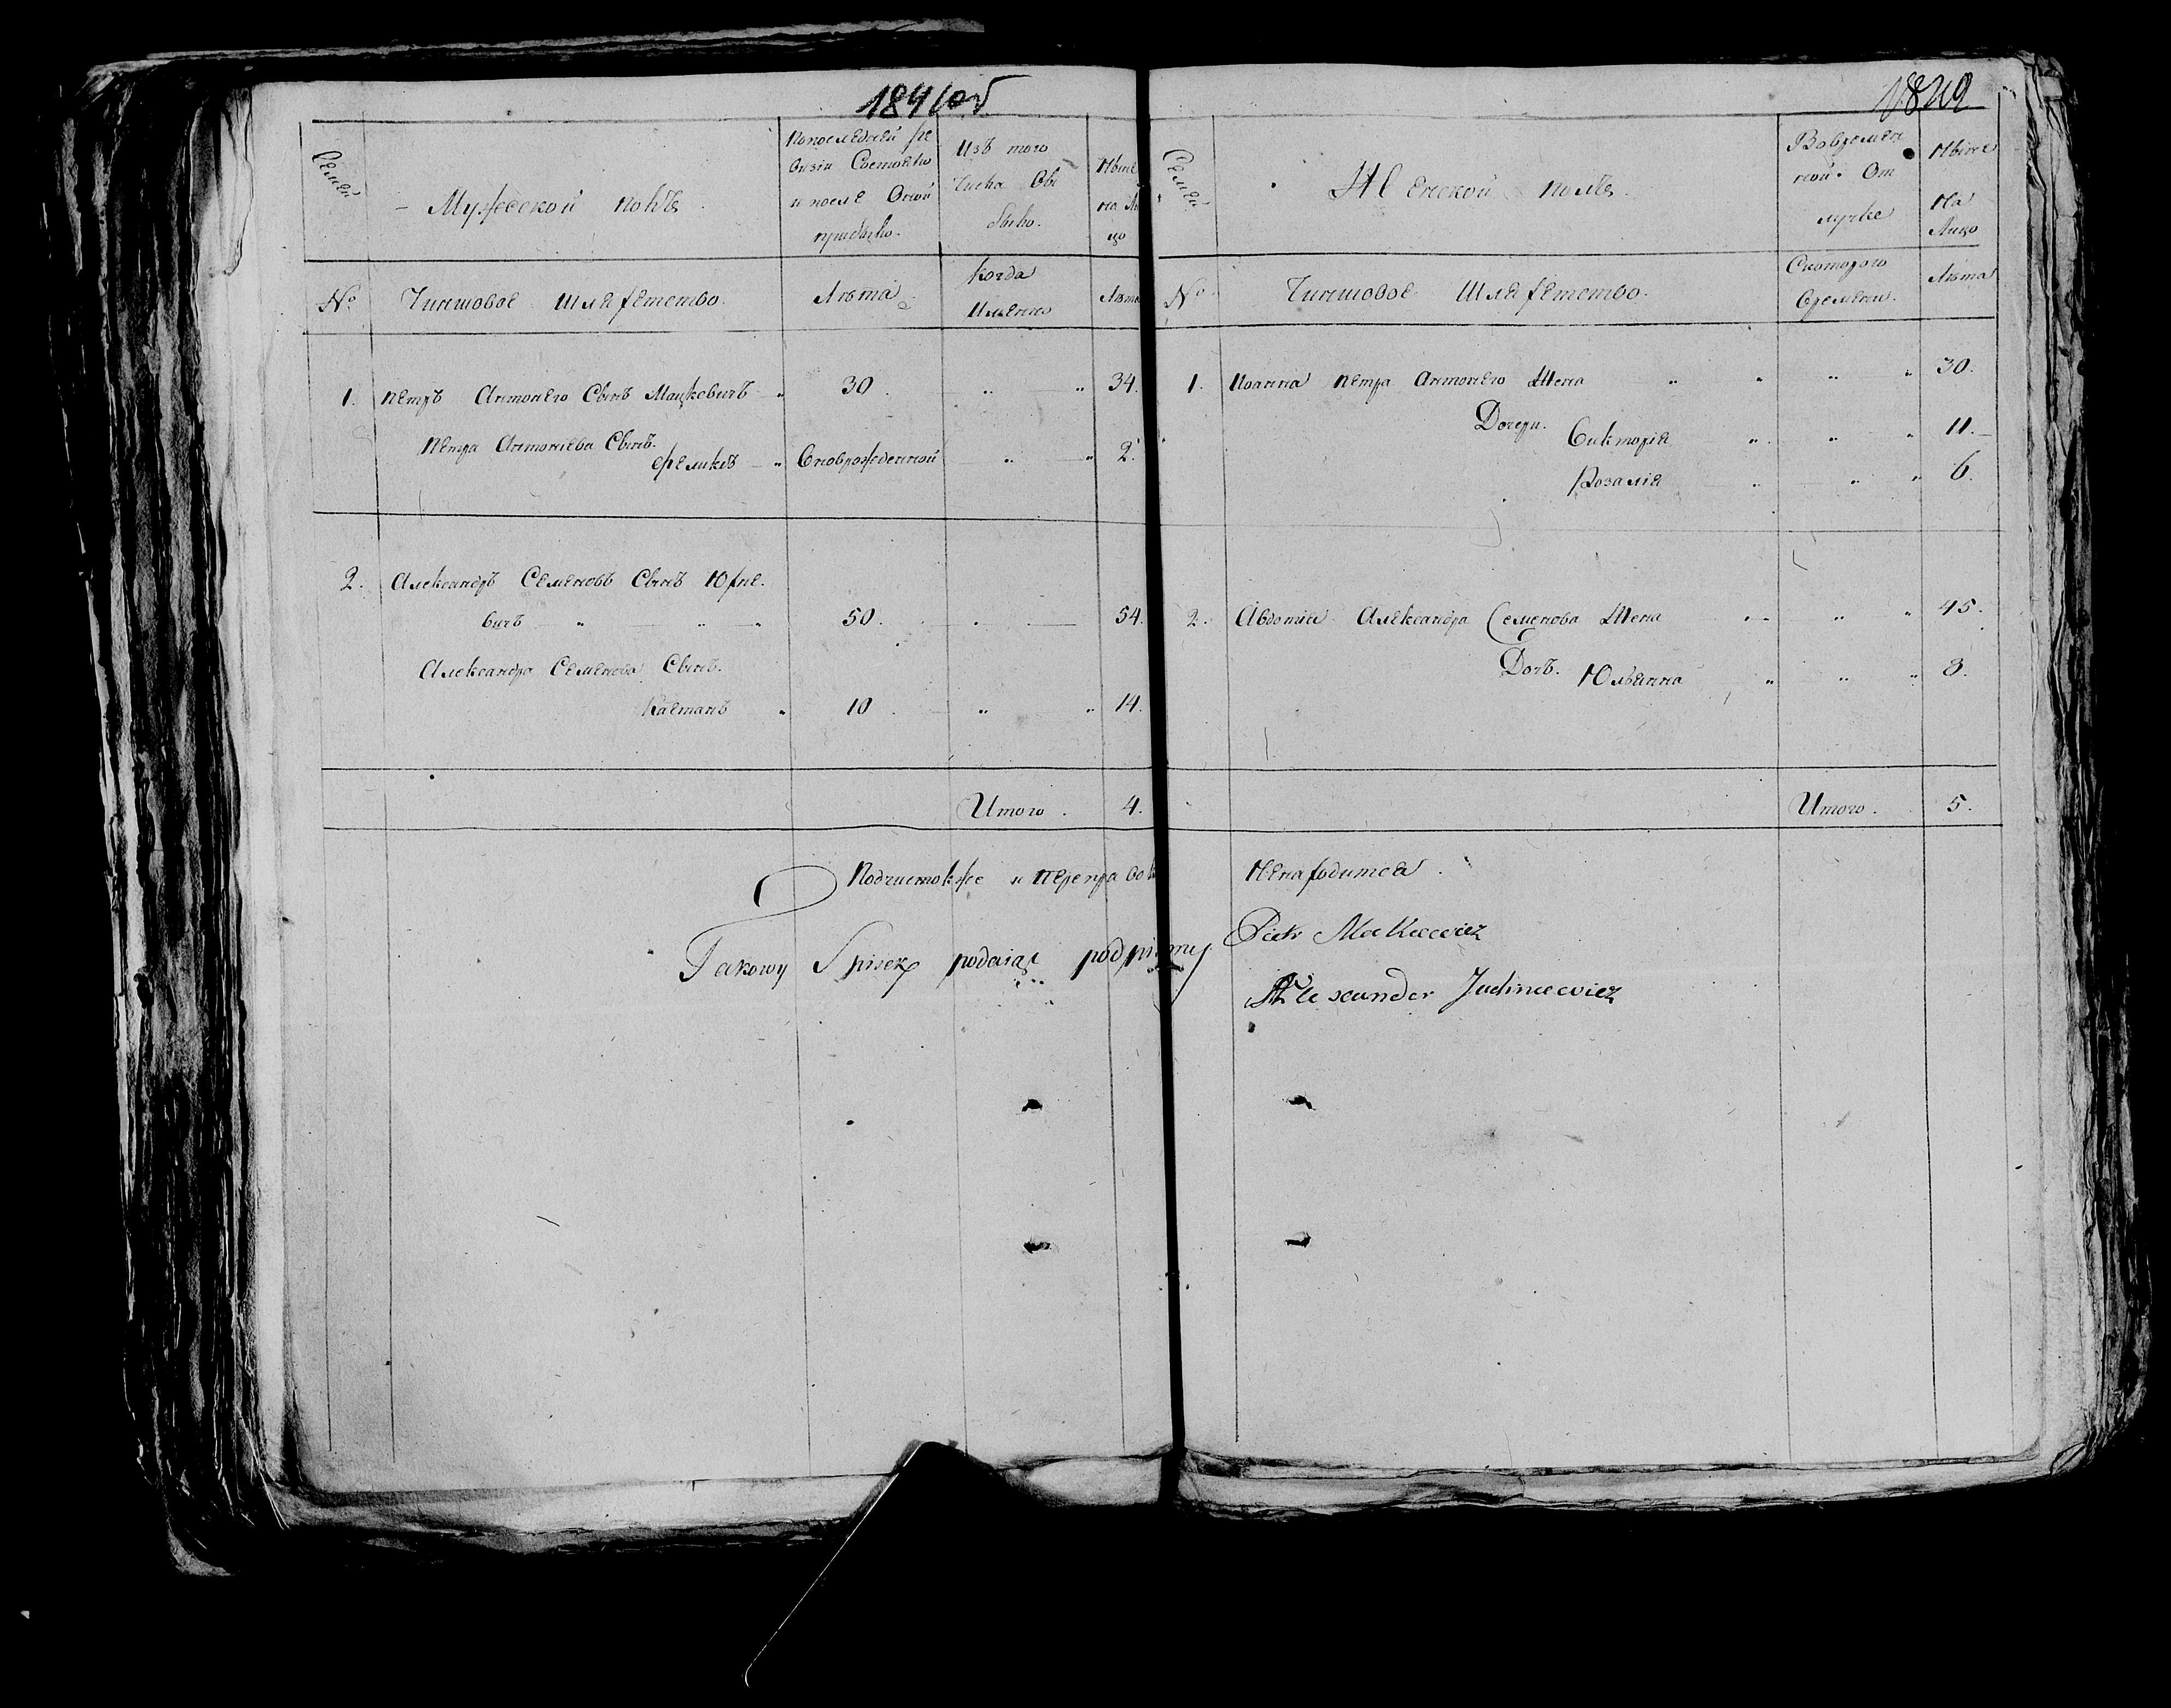 1849
Семей
Мужескои полъ
По последней ре
визіи Состояло
и после Оной
прибыло.
Изъ того
Числа Вы
было.
Ныне
на Ли
цо
№
Чиншовое Шляхетство.
Лѣта
Когда
Именно
Лѣта
1. Петръ Антоніего Сынъ Мацкевичъ 30 34.
Петра Антоніева Сынъ.
Феликсъ Сноворожденной 2.
2. Александръ Семеновъ Сынъ Юхне.
вичъ 50. 54.
Александра Семенова Сынъ.
Каетанъ 10 14.
Итого. 4.
Семей
Женской полъ.
Вовремен
ной От
лучке
Ныне
На
Лицо
№
Чиншовое Шляхетство.
Скоторого
Времени.
Лѣта
1. Іоанна Петра Антоніего Жена 30.
Дочери.
Викторія 11.
Розалія 6.
2. Авдотія Александра Семенова Жена 45.
Дочь. Юльянна 8.
Итого. 5.
Подчистокже и переправокъ Ненаходится.
Takowy Spisek podaiąc podpisuję
Piotr Mackiewicz
Alexander Juchniewicz